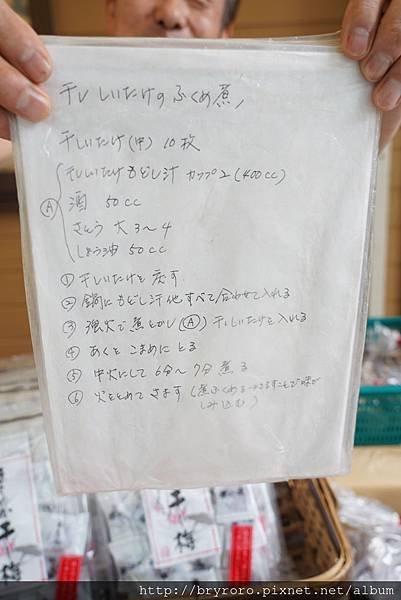 干しいたけのふくめ煮
干しいたけ(中) 10枚
干しいたけもどし汁 カップ2(400cc)
Ⓐ 酒 50cc
さとう 大3〜4
しょう油 50cc
① 干しいたけを戻す
② 鍋にもどし汁他すべて合わせて入れる
③ 強火で煮とかし(Ⓐ)干しいたけを入れる
④ あくをこまめにとる
⑤ 中火にして 6分〜7分煮る
⑥ 火をとめてさます(煮ふくめる→さますことで味が
しみ込む)
http://bryroro.pixnet.net/album